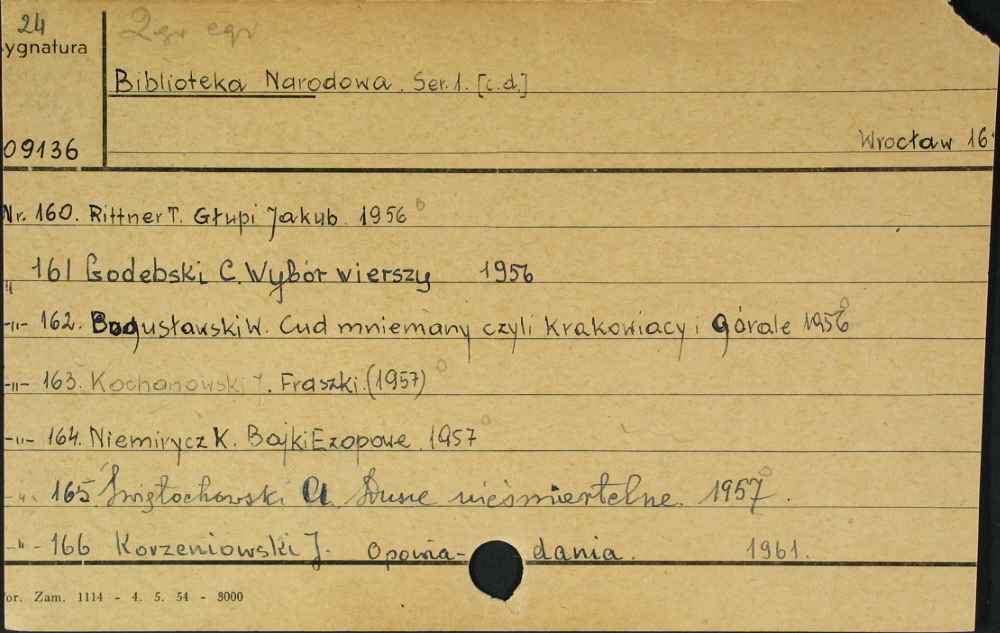 24 2gi egz
ygnatura
Biblioteka Narodowa. Ser. 1. [c.d.]
09136 Wrocław 16
Nr. 160. Rittner T. Głupi Jakub. 1956
" 161 Godebski C. Wybór wierszy 1956
-"- 162. Bogusławski W. Cud mniemany czyli Krakowiacy i Górale 1956
-"- 163. Kochanowski J. Fraszki. (1957)
-"- 164. Niemirycz K. Bajki Ezopowe. 1957
-"- 165 Świętochowski A. Dusze nieśmiertelne. 1957.
-"- 166 Korzeniowski J. Opowia- dania. 1961.
or. Zam. 1114 - 4. 5. 54 - 3000